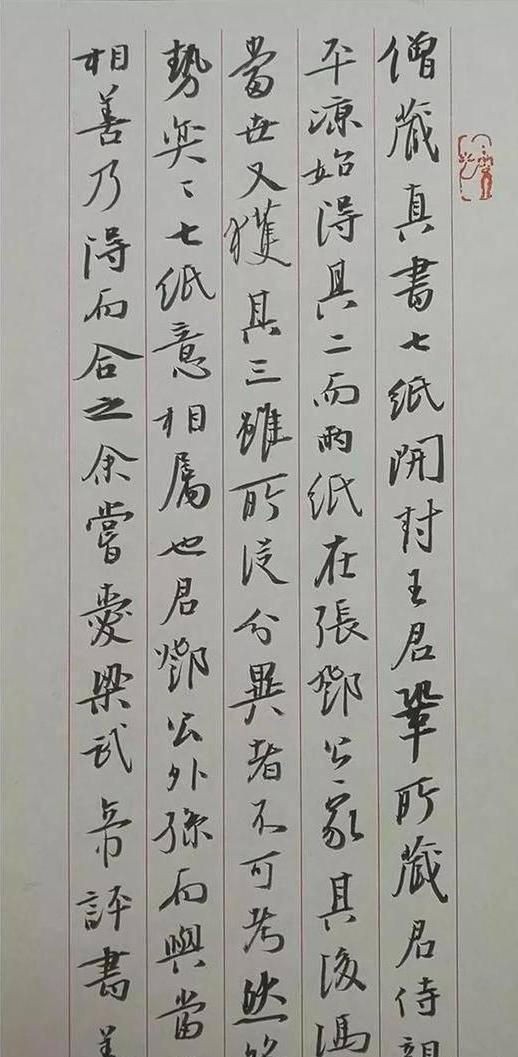 僧藏真書七紙開封王君鞏所藏君侍親
平涼始得其二而兩紙在張鄧公家其後馮
當世又獲其三雖所從分異者不可考然
勢奕〻七紙意相屬也君鄧公外孫而與當
相善乃得而合之余嘗愛梁武帝評書